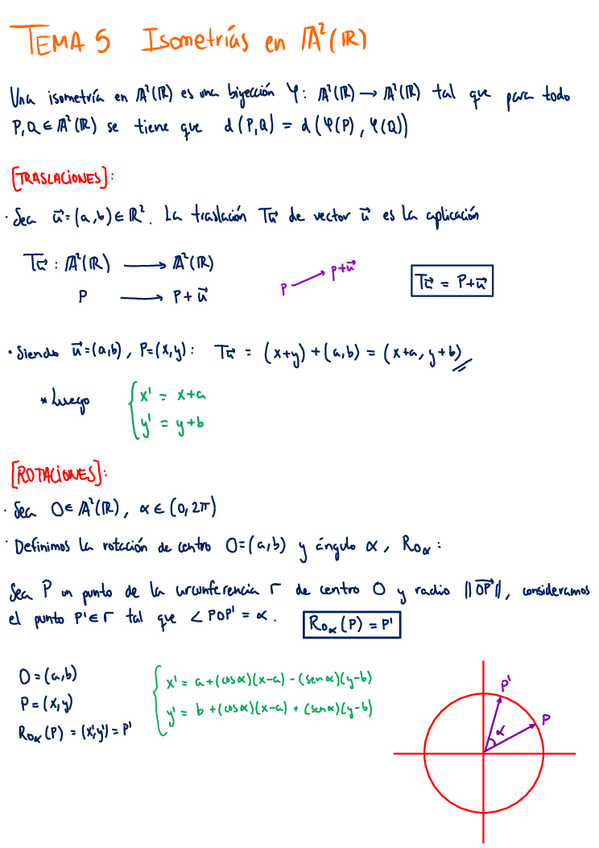 TEMA 5 Isometrías en A²(R)
Una isometría en A²(R) es una biyección φ: A²(R) → A²(R) tal que para todo
P,Q ∈ A²(R) se tiene que d(P,Q) = d(φ(P), φ(Q))
[TRASLACIONES]:
· Sea u⃗=(a,b) ∈ R². La traslación Tu⃗ de vector u⃗ es la aplicación
Tu⃗ : A²(R) → A²(R)
P → P+u⃗
P → P+u⃗
Tu⃗ = P+u⃗
· Siendo u⃗=(a,b), P=(x,y): Tu⃗ = (x+y)+(a,b) = (x+a, y+b)
* Luego { x' = x+a
y' = y+b
[ROTACIONES]:
· Sea O ∈ A²(R), α ∈ (0,2π)
· Definimos la rotación de centro O=(a,b) y ángulo α, Roα:
Sea P un punto de la circunferencia Γ de centro O y radio ||OP⃗||, consideramos
el punto P' ∈ Γ tal que ∠POP' = α. Roα(P) = P'
O = (a,b)
P = (x,y)
Roα(P) = (x',y') = P'
{ x' = a+(cosα)(x-a) - (senα)(y-b)
y' = b+(cosα)(x-a) + (senα)(y-b)
P'
P
α